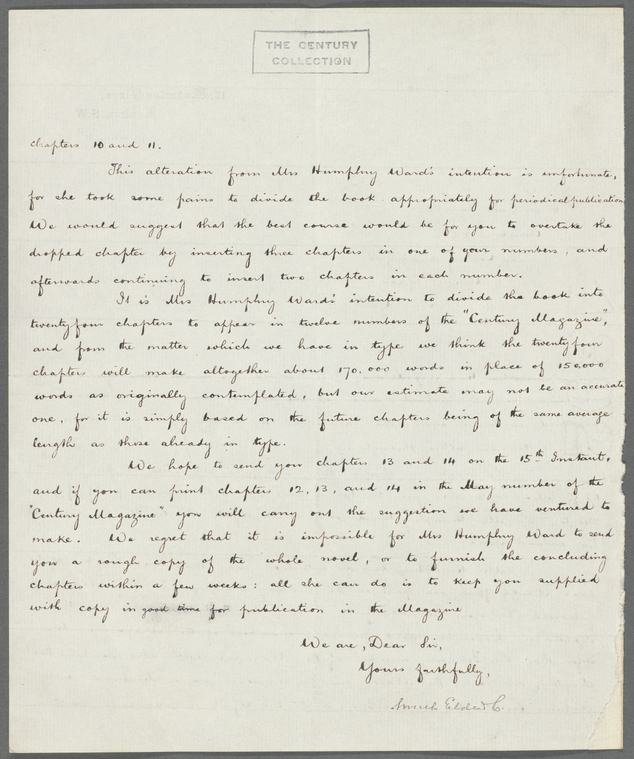 THE CENTURY
COLLECTION
chapters 10 and 11.
This alteration from Mrs Humphry Ward's intention is unfortunate,
for she took some pains to divide the book appropriately for periodical publication
We would suggest that the best course would be for you to overtake the
dropped chapter by inserting three chapters in one of your numbers, and
afterwards continuing to insert two chapters in each number.
It is Mrs Humphry Ward's intention to divide the book into
twentyfour chapters to appear in twelve numbers of the "Century Magazine",
and from the matter which we have in type we think the twentyfour
chapters will make altogether about 170.000 words in place of 150000
words as originally contemplated, but our estimate may not be an accurate
one, for it is simply based on the future chapters being of the same average
length as those already in type.
We hope to send your chapters 13 and 14 on the 15th Instant,
and if you can print chapters 12, 13, and 14 in the May number of the
"Century Magazine" you will carry out the suggestion we have ventured to
make. We regret that it is impossible for Mrs Humphry Ward to send
you a rough copy of the whole novel, or to furnish the concluding
chapters within a few weeks: all she can do is to keep you supplied
with copy in good time for publication in the Magazine
We are, Dear Sir,
Yours faithfully,
Smith Elder & C.